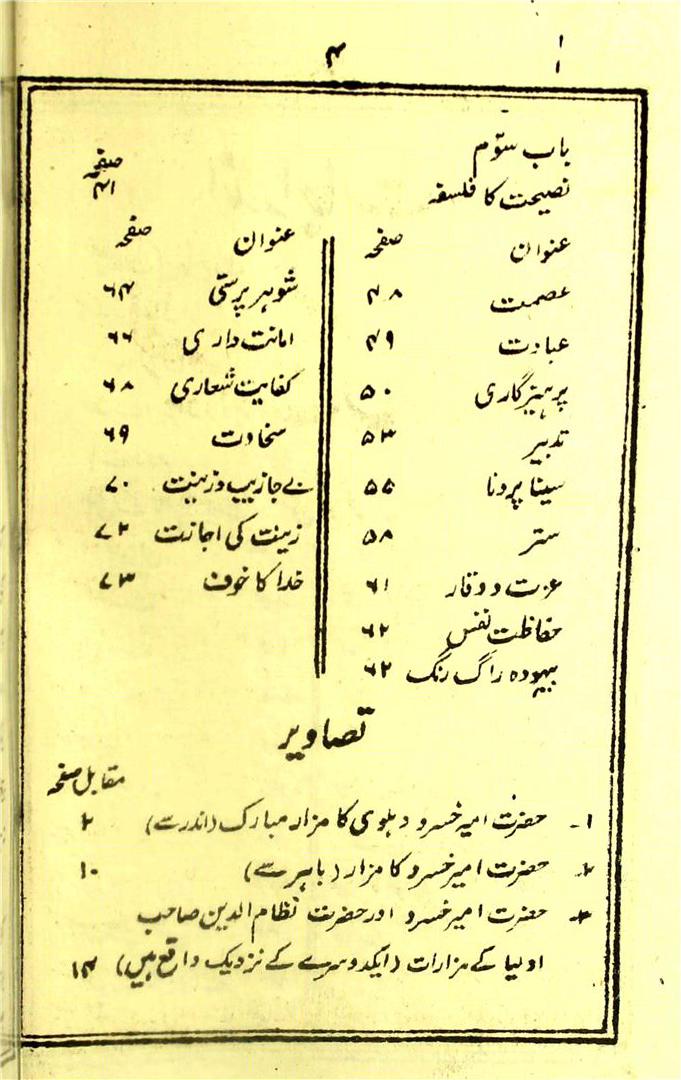 ۴
باب سوّم
نصیحت کا فلسفہ صفحہ ۴۱
عنوان صفحہ
عصمت ۴۸
عبادت ۴۹
پرہیزگاری ۵۰
تدبیر ۵۳
سینا پرونا ۵۵
ستر ۵۸
عزت و وقار ۶۱
حفاظت نفس ۶۲
بیہودہ راگ رنگ ۶۲
عنوان صفحہ
شوہر پرستی ۶۴
امانت داری ۶۶
کفایت شعاری ۶۸
سخاوت ۶۹
بے جا زیب و زینت ۷۰
زینت کی اجازت ۷۲
خدا کا خوف ۷۳
تصاویر
مقابل صفحہ
۱۔ حضرت امیر خسرو دہلوی کا مزار مبارک (اندر سے) ۲
۲۔ حضرت امیر خسرو کا مزار (باہر سے) ۱۰
۳۔ حضرت امیر خسرو اور حضرت نظام الدین صاحب
اولیا کے مزارات (ایکدوسرے کے نزدیک واقع ہیں) ۱۴